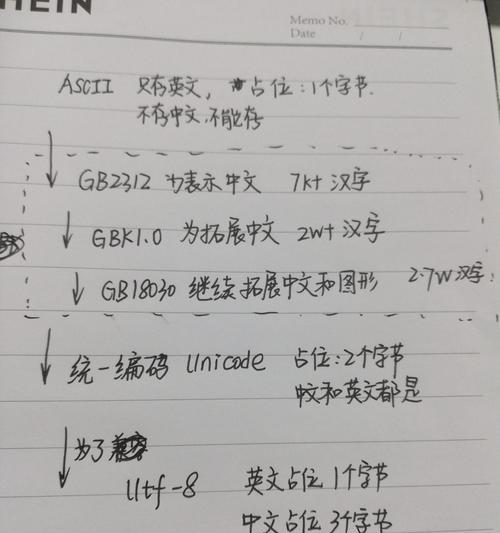 HEIN
Memo No.
Date / /
ASCII 只存英文, 占位:1个字节.
不存中文,不能存
GB2312 为表示中文 7k+ 汉字
GBK1.0 为拓展中文 2W+ 汉字
GB18030 继续拓展中文和图形 2.7W汉字
统一编码 Unicode 占位:2个字节
中文和英文都是
为了兼容
Utf-8 英文占位1个字节
中文占位3个字节